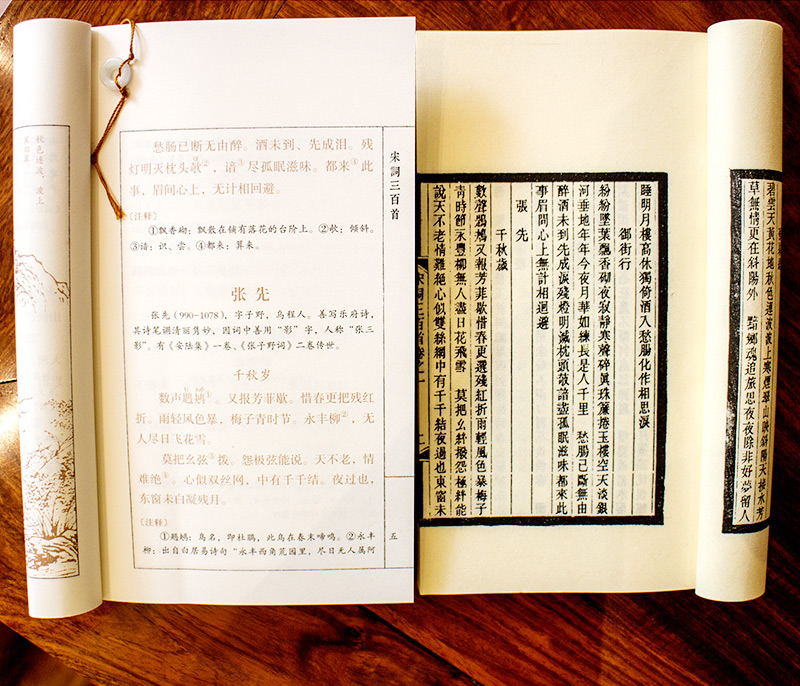 秋色连波，波上
愁肠已断无由醉。酒未到、先成泪。残
灯明灭枕头攲②，谙③尽孤眠滋味。都来④此
事，眉间心上，无计相回避。
〔注释〕
①飘香砌：飘散在铺有落花的台阶上。②攲：倾斜。
③谙：识、尝。④都来：算来。
张 先
张先（990-1078），字子野，乌程人。善写乐府诗，
其诗笔调清丽隽妙，因词中善用“影”字，人称“张三
影”。有《安陆集》一卷、《张子野词》二卷传世。
千秋岁
数声鶗鴂①。又报芳菲歇。惜春更把残红
折。雨轻风色暴，梅子青时节。永丰柳②，无
人尽日飞花雪。
莫把幺弦③拨。怨极弦能说。天不老，情
难绝④。心似双丝网，中有千千结。夜过也，
东窗未白凝残月。
〔注释〕
①鶗鴂：鸟名，即杜鹃，此鸟在春末啼鸣。②永丰
柳：出自白居易诗句“永丰西角荒园里，尽日无人属阿
宋詞三百首
五
碧雲天黃花地秋色連波波上寒煙翠山映斜陽天接水芳
草無情更在斜陽外　黯鄉魂追旅思夜夜除非好夢留人
睡明月樓高休獨倚酒入愁腸化作相思淚
御街行
紛紛墜葉飄香砌夜寂靜寒聲碎眞珠簾捲玉樓空天淡銀
河垂地年年今夜月華如練長是人千里　愁腸已斷無由
醉酒未到先成淚殘燈明滅枕頭攲諳盡孤眠滋味都來此
事眉間心上無計相迴避
張先
千秋歲
數聲鶗鴂又報芳菲歇惜春更選殘紅折雨輕風色暴梅子
靑時節永豐柳無人盡日花飛雪　莫把幺絃撥怨極絃能
說天不老情難絕心似雙絲網中有千千結夜過也東窗未
宋詞三百首卷之一